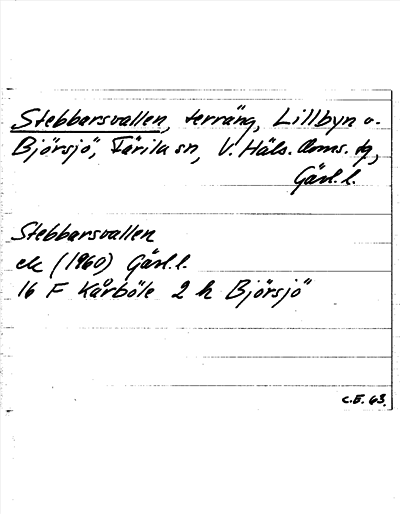 Stebbarsvallen, terräng, Lillbyn o.
Björsjö, Färila sn, V. Häls. doms. dg,
Gävl. l.
Stebbarsvallen
ek (1960) Gävl. l.
16 F Kårböle 2 h Björsjö
C.E. 63.